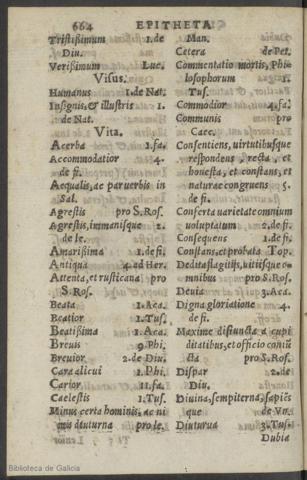 664 EPITHETA
Tristißimum 1. de
Diu.
Verißimum Luc.
Visus.
Humanus 1. de Nat.
Insignis, & illustris 1.
de Nat.
Vita.
Acerba 1. fa.
Accommodatior 4.
de fi.
Aequalis, ac par verbis in
Sal.
Agrestis pro S. Ros.
Agrestis, immanisque 2.
de le.
Amarißima 1. de fi.
Antiqua 4. ad Her.
Attenta, et rusticana pro
S. Ros.
Beata 1. Aca.
Beatior 1. Tus.
Beatißima 1. Aca.
Breuis 9. Phi.
Breuior 2. de Diu.
Cara alicui 1. Phi.
Carior 11. fa.
Caelestis 1. Tus.
Minus certa hominis, ac ni
mis diuturna pro le.
Man.
Cetera de Pet.
Commentatio mortis, Phi
losophorum 1.
Tus.
Commodior 4. fa.
Communis pro
Caec.
Consentiens, virtutibusque
respondens, recta, et
honesta, et constans, et
naturae congruens 5.
de fi.
Conserta varietate omnium
voluptatum 2. de fi.
Consequens 1. de fi.
Constans, et probata Top.
Dedita flagitijs, vitijsque o-
mnibus pro S. Ros.
Deuia 3. Aca.
Digna gloriatione 4.
de fi.
Maxime disiuncta a cupi
ditatibus, et officio coniū
cta pro S. Ros.
Dispar 2. de
Diu.
Diuina, sempiterna, sapiēs
que de Vn.
Diuturna 3. Tus.
Dubia
Biblioteca de Galicia